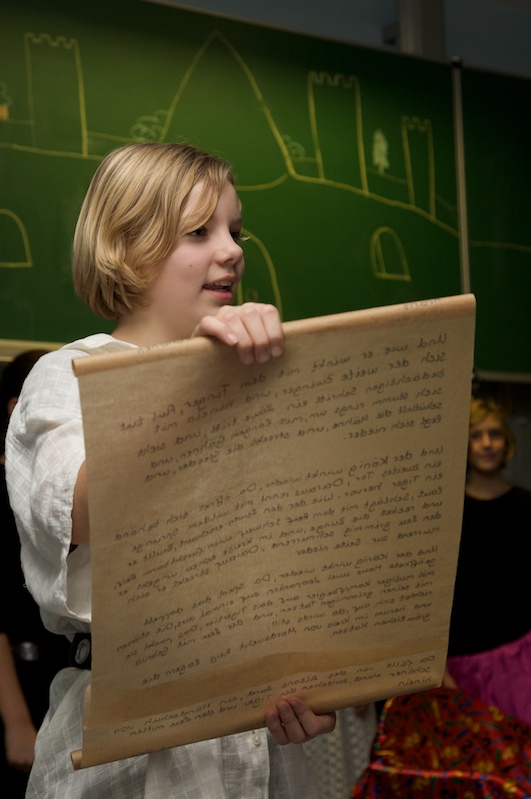 Und wie er winkt mit dem Finger, Auf tut
sich der weite Zwinger, und hinein mit
bedächtigem Schritt ein Löwe tritt, und sieht
sich stumm rings um, mit langem Gähnen, und
schüttelt die Mähne, und streckt die Glieder, und
legt sich nieder.
Und der König winkt wieder, Da öffnet sich behend
ein zweites Tor, Daraus rennt mit wildem Sprunge
ein Tiger hervor. Wie der den Löwen erschaut, brüllt er
laut, schlägt mit dem Schweif einen furchtbaren Reif,
und recket die Zunge, und im Kreise scheu umgeht er
den Leu grimmig schnurrend, Darauf streckt er sich
murrend zur Seite nieder.
Und der König winkt wieder, Da speit das doppelt
geöffnete Haus zwei Leoparden auf einmal aus, Die stürzen
mit mutiger Kampfbegier auf das Tigertier, Das packt sie
mit seinen grimmigen Tatzen, und der Leu mit Gebrüll
richtet sich auf, da wird's still,
und herum im Kreis von Mordsucht heiß lagern die
gräulichen Katzen.
Da fällt von des Altans Rand, ein Handschuh von
schöner Hand zwischen den Tiger und den Leun mitten
hinein.